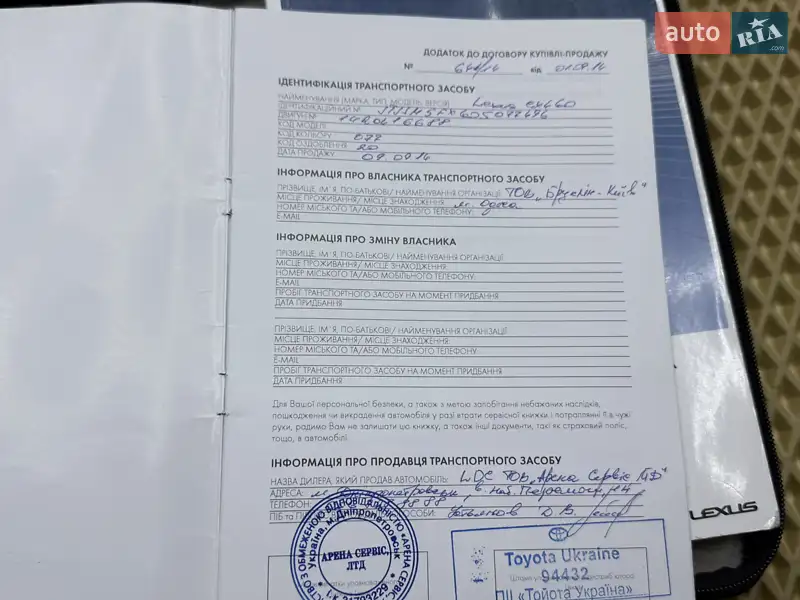 auto RIA.com
ДОДАТОК ДО ДОГОВОРУ КУПІВЛІ-ПРОДАЖУ
№ 644/14 від 01.09.14
ІДЕНТИФІКАЦІЯ ТРАНСПОРТНОГО ЗАСОБУ
НАЙМЕНУВАННЯ (МАРКА, ТИП, МОДЕЛЬ, ВЕРСІЯ) Lexus GX460
ІДЕНТИФІКАЦІЙНИЙ №
ДВИГУН №
КОД МОДЕЛІ
КОД КОЛЬОРУ 077
КОД ОЗДОБЛЕННЯ 20
ДАТА ПРОДАЖУ 09.14
ІНФОРМАЦІЯ ПРО ВЛАСНИКА ТРАНСПОРТНОГО ЗАСОБУ
ПРІЗВИЩЕ, ІМ'Я, ПО-БАТЬКОВІ/ НАЙМЕНУВАННЯ ОРГАНІЗАЦІЇ ТОВ
МІСЦЕ ПРОЖИВАННЯ/ МІСЦЕ ЗНАХОДЖЕННЯ м. Одеса
НОМЕР МІСЬКОГО ТА/АБО МОБІЛЬНОГО ТЕЛЕФОНУ:
E-MAIL
ІНФОРМАЦІЯ ПРО ЗМІНУ ВЛАСНИКА
ПРІЗВИЩЕ, ІМ'Я, ПО-БАТЬКОВІ/ НАЙМЕНУВАННЯ ОРГАНІЗАЦІЇ
МІСЦЕ ПРОЖИВАННЯ/ МІСЦЕ ЗНАХОДЖЕННЯ
НОМЕР МІСЬКОГО ТА/АБО МОБІЛЬНОГО ТЕЛЕФОНУ:
E-MAIL
ПРОБІГ ТРАНСПОРТНОГО ЗАСОБУ НА МОМЕНТ ПРИДБАННЯ
ДАТА ПРИДБАННЯ
ПРІЗВИЩЕ, ІМ'Я, ПО-БАТЬКОВІ/ НАЙМЕНУВАННЯ ОРГАНІЗАЦІЇ
МІСЦЕ ПРОЖИВАННЯ/ МІСЦЕ ЗНАХОДЖЕННЯ:
НОМЕР МІСЬКОГО ТА/АБО МОБІЛЬНОГО ТЕЛЕФОНУ
E-MAIL
ПРОБІГ ТРАНСПОРТНОГО ЗАСОБУ НА МОМЕНТ ПРИДБАННЯ
ДАТА ПРИДБАННЯ
Для Вашої персональної безпеки, а також з метою запобігання небажаних наслідків,
пошкодження чи викрадення автомобіля у разі втрати сервісної книжки і потраплянні її в чужі
руки, радимо Вам не залишати цю книжку, а також інші документи, такі як страховий поліс,
тощо, в автомобілі.
ІНФОРМАЦІЯ ПРО ПРОДАВЦЯ ТРАНСПОРТНОГО ЗАСОБУ
НАЗВА ДИЛЕРА, ЯКИЙ ПРОДАВ АВТОМОБІЛЬ: ТОВ "Арена Сервіс ЛТД"
АДРЕСА: м. Дніпропетровськ
ТЕЛЕФОН
ПІБ та
ОСОБИ:
З ОБМЕЖЕНОЮ ВІДПОВІДАЛЬНІСТЮ "АРЕНА СЕРВІС
Україна, м. Дніпропетровськ
АРЕНА СЕРВІС,
ЛТД
Toyota Ukraine
94432
ПІІ «Тойота Україна»
LEXUS